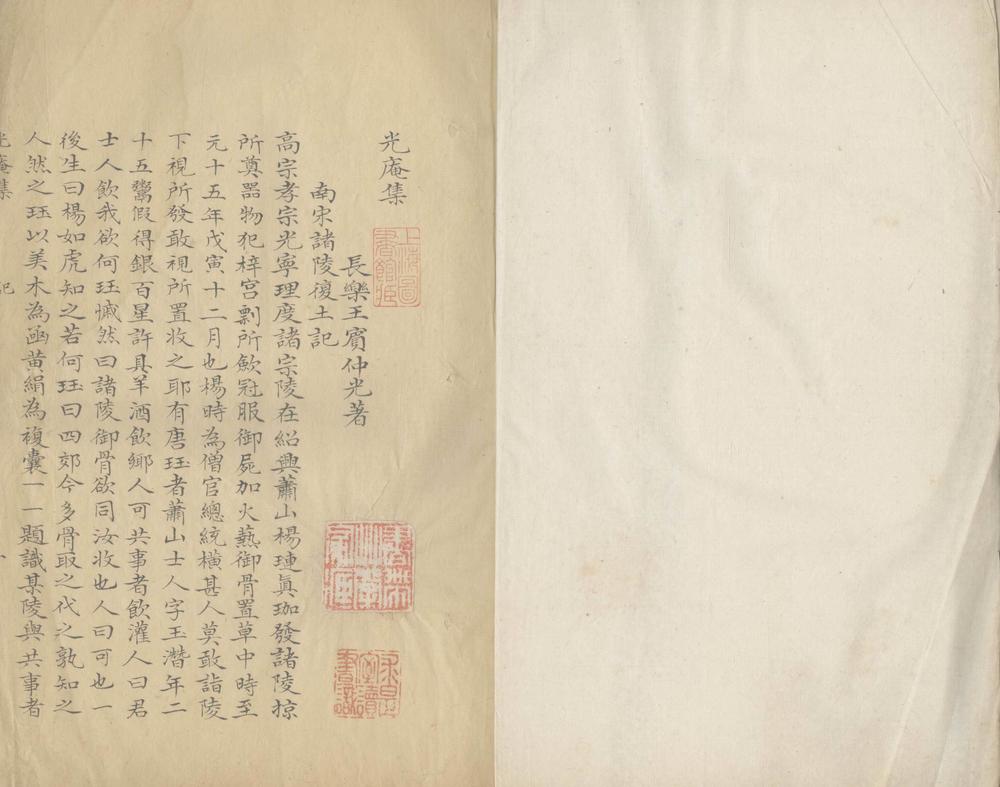 光庵集
長樂王賓仲光著
南宋諸陵復土記
高宗孝宗光寧理度諸宗陵在紹興蕭山楊璉眞珈發諸陵掠
所奠器物犯梓宮剽所歛冠服御屍加火爇御骨置草中時至
元十五年戊寅十二月也楊時為僧官總統橫甚人莫敢詣陵
下視所發敢視所置收之耶有唐珏者蕭山士人字玉潛年二
十五鬻假得銀百星許具羊酒飲鄉人可共事者飲灌人曰君
士人飲我欲何珏慽然曰諸陵御骨欲同汝收也人曰可也一
後生曰楊如虎知之若何珏曰四郊今多骨取之代之孰知之
人然之珏以美木為函黃絹為複囊一一題識某陵與共事者
光庵集
記
上海圖書館藏